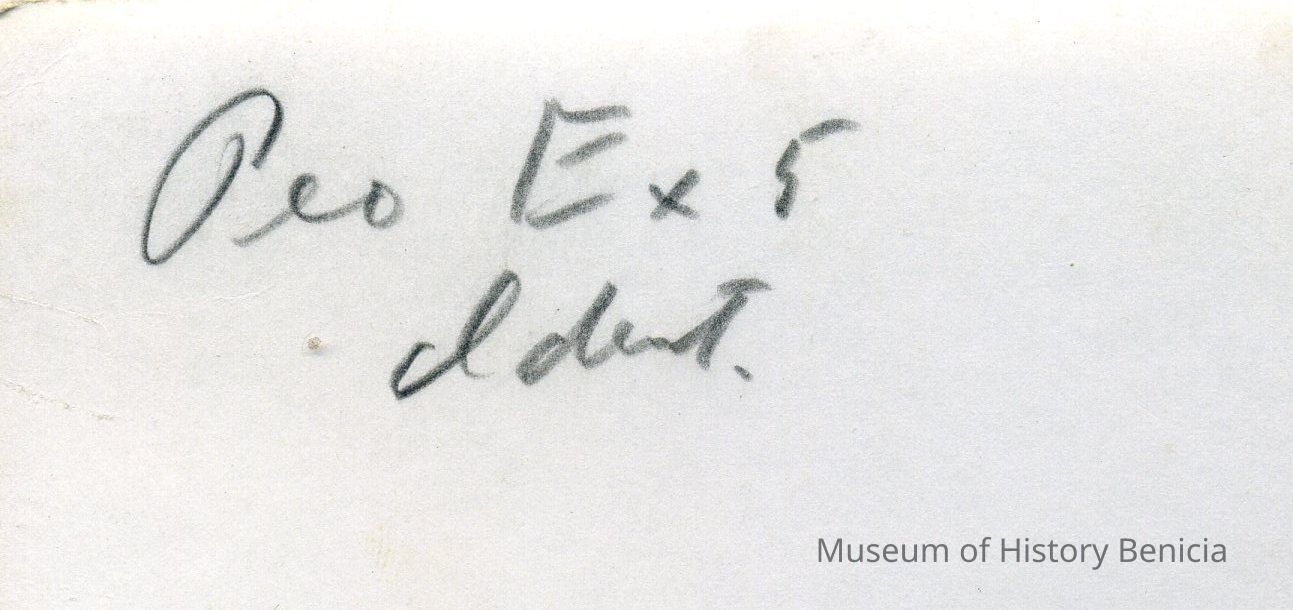 Peo Ex 5
Ident.
Museum of History Benicia